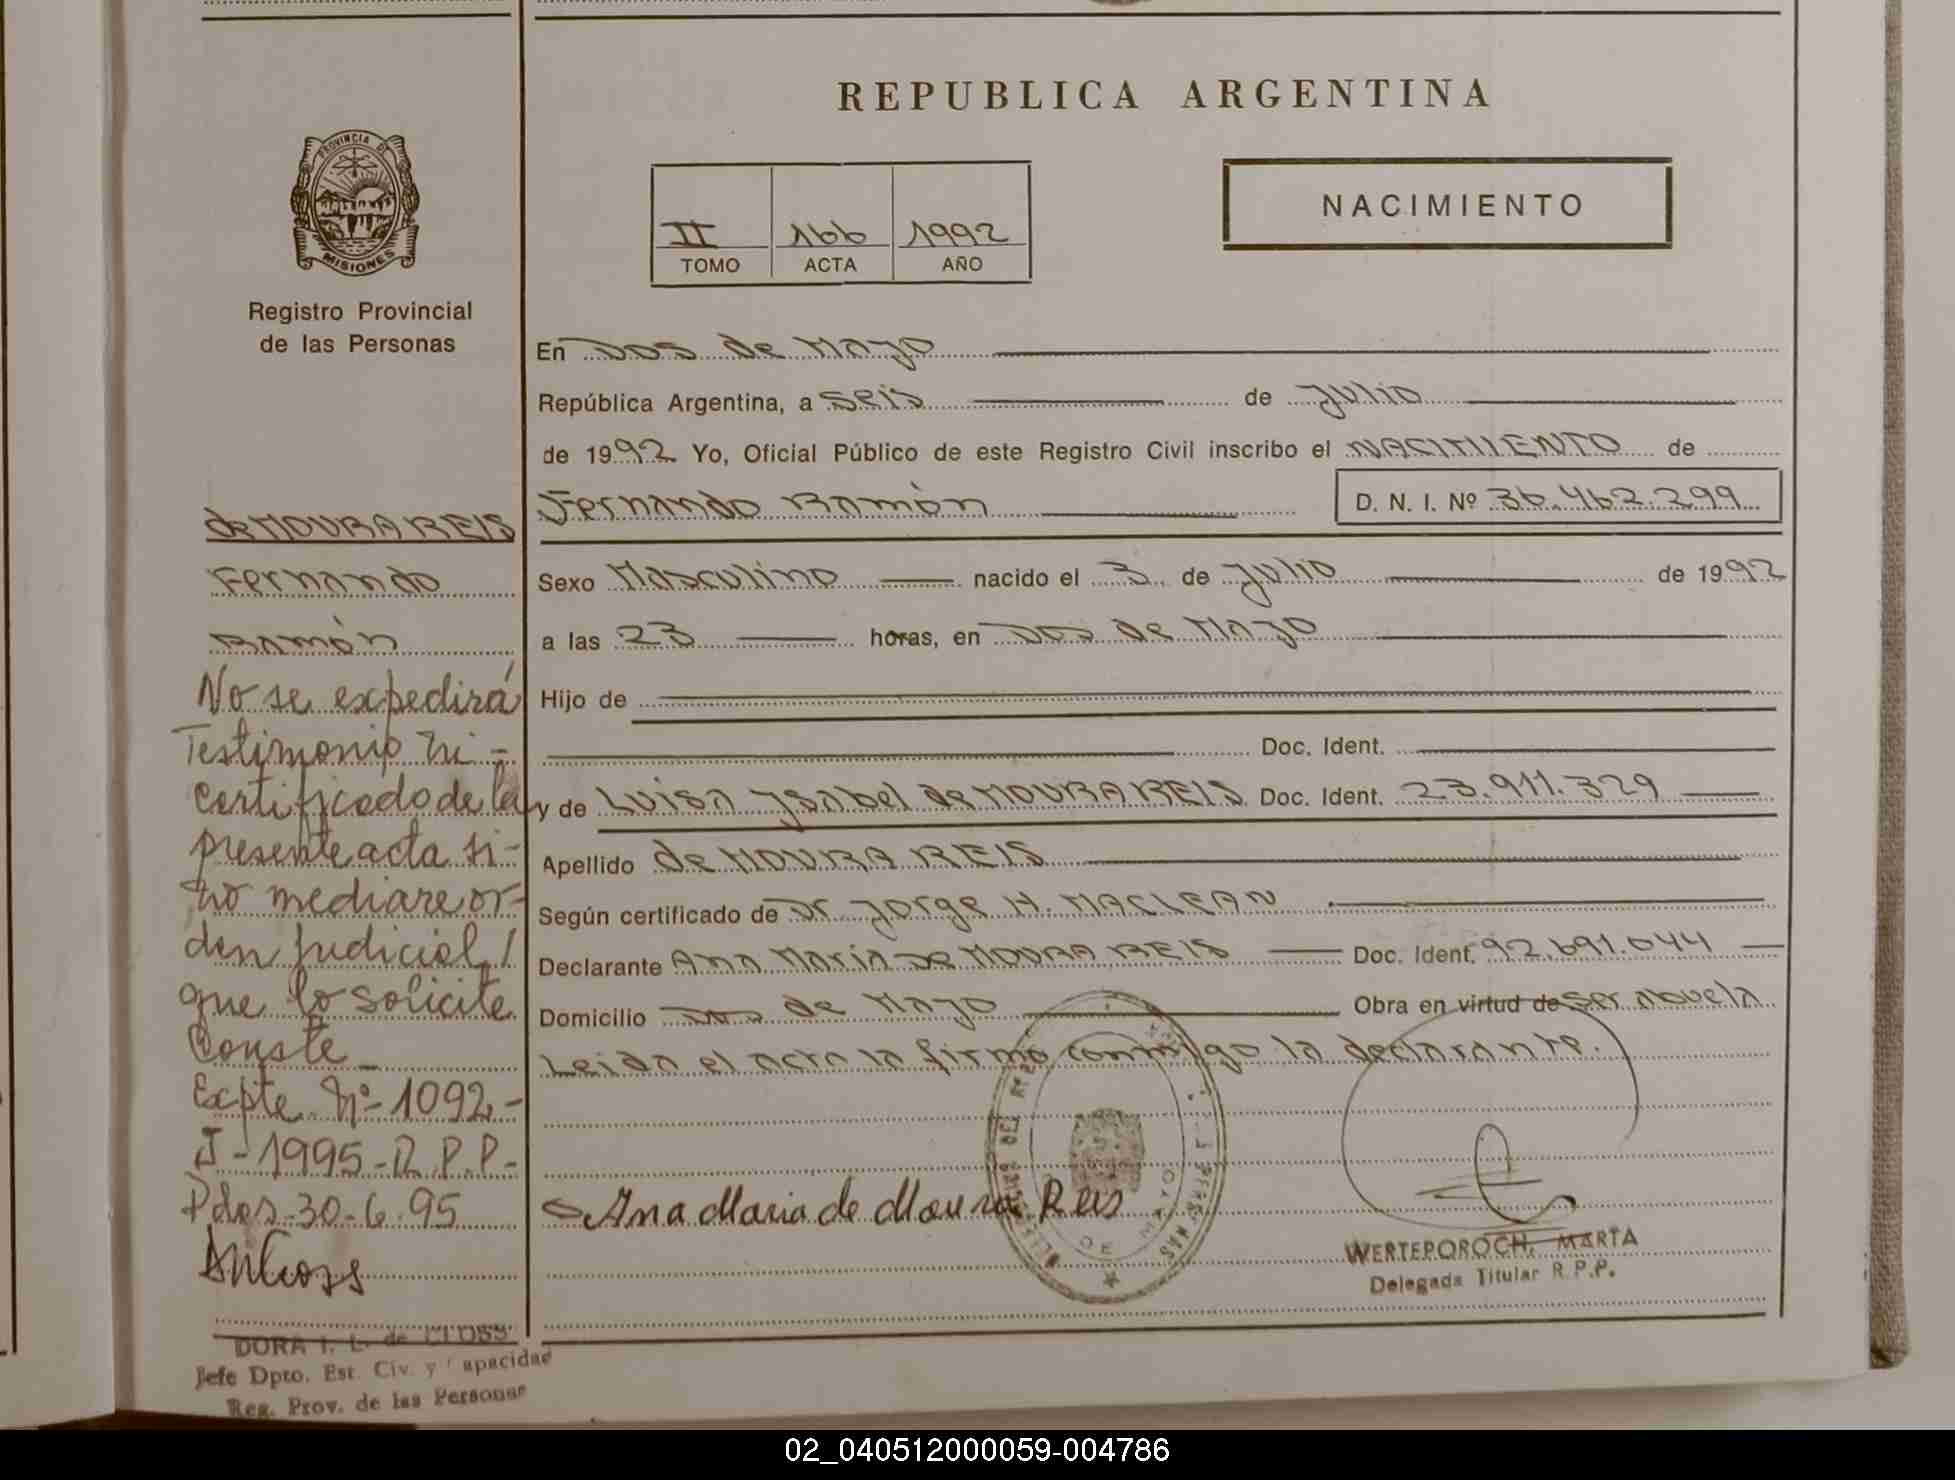 REPUBLICA ARGENTINA
PROVINCIA DE
MISIONES
Registro Provincial
de las Personas
II 166 1992
TOMO ACTA AÑO
NACIMIENTO
En Dos de Mayo
República Argentina, a seis de Julio
de 1992 Yo, Oficial Público de este Registro Civil inscribo el NACIMIENTO de
Fernando Ramón D. N. I. Nº 36.462.299
Sexo Masculino nacido el 3 de Julio de 1992
a las 23 horas, en Dos de Mayo
Hijo de
Doc. Ident.
y de Luisa Ysabel de MOURA REIS Doc. Ident. 23.911.329
Apellido de MOURA REIS
Según certificado de Dr Jorge H. MACLEAN
Declarante Ana María DE MOURA REIS Doc. Ident. 92.691.044
Domicilio Dos de Mayo Obra en virtud de ser abuela
Leida el acta la firma conmigo la declarante.
Ana Maria de Moura Reis
DE MAYO
WERTEPOROCH, MARTA
Delegada Titular R.P.P.
de MOURA REIS
Fernando
Ramón
No se expedirá
Testimonio ni -
Certificado de la
presente acta si-
no mediare or-
den judicial /
que lo solicite
Conste _
Expte Nº 1092 -
J - 1995 - R.P.P-
Pdas 30-6-95
DORA I. L. de CLOSS
Jefe Dpto. Est. Civ. y Capacidad
Reg. Prov. de las Personas
02_040512000059-004786